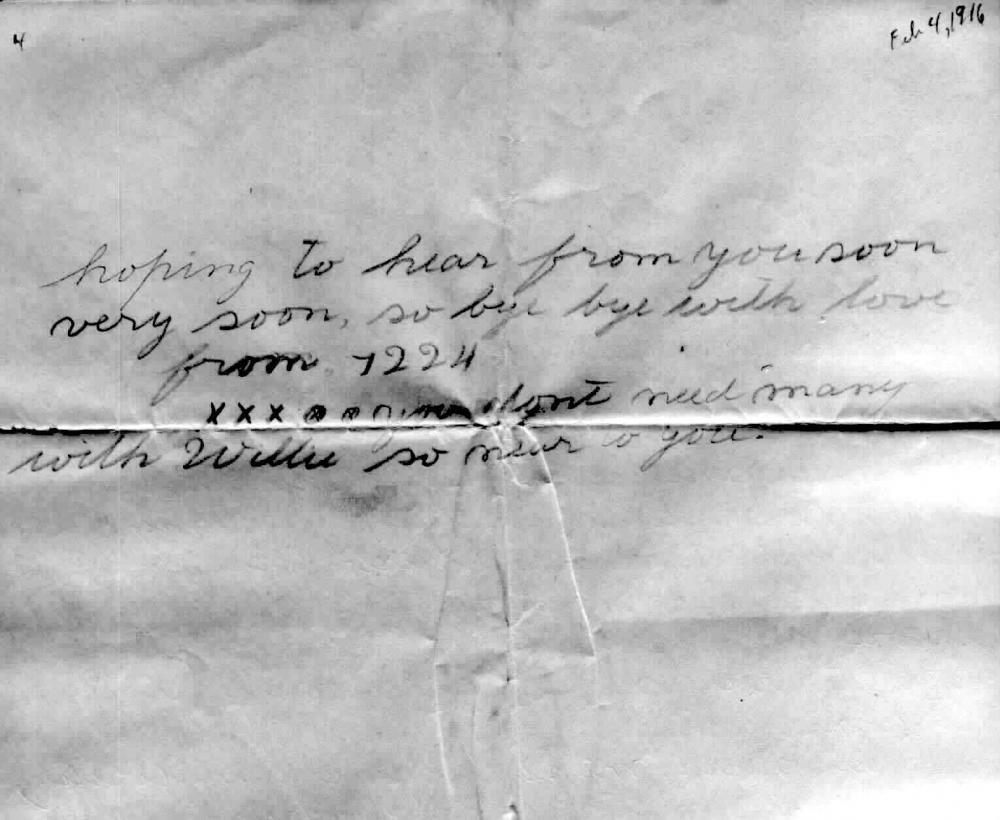 4
Feb 4, 1916
hoping to hear from you soon
very soon, so bye bye with love
from 7224
xxx dont need many
with Willie so near to you.